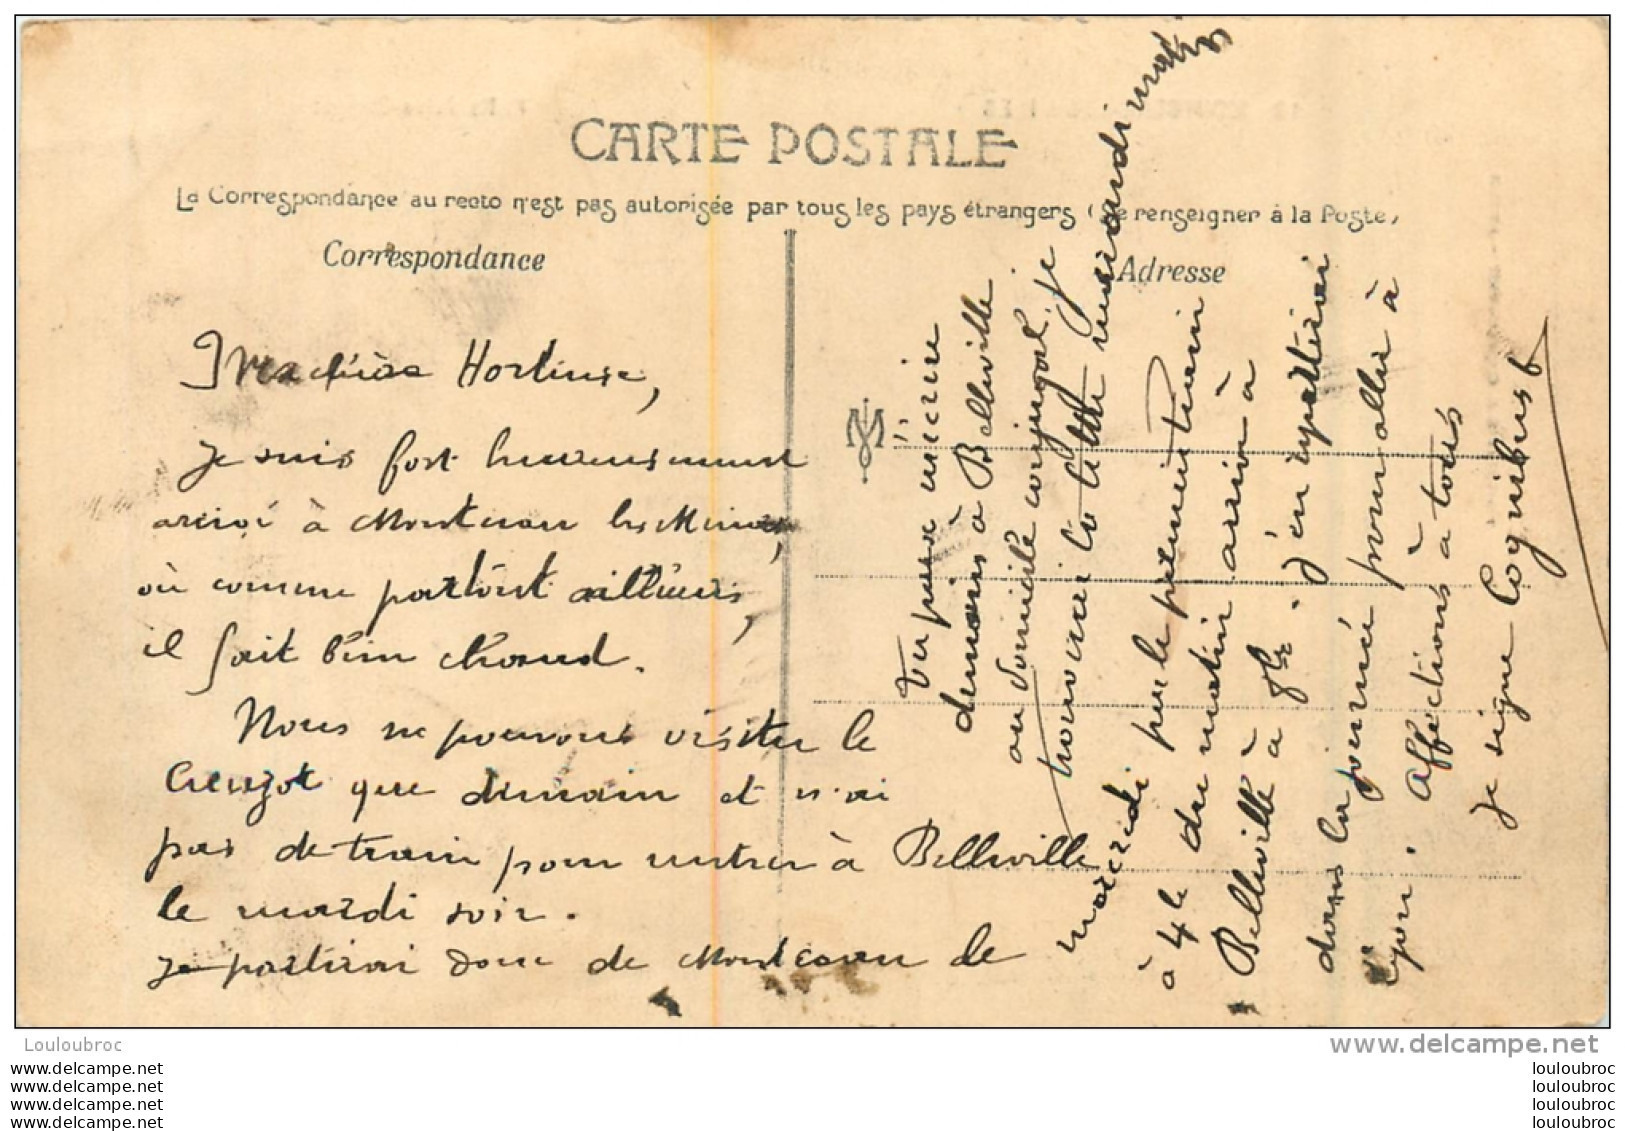 CARTE POSTALE
La Correspondance au recto n'est pas autorisée par tous les pays étrangers (Se renseigner à la Poste)
Correspondance
Adresse
Ma chère Hortense,
Je suis fort heureusement
arrivé à Montceau les Mines,
où comme partout ailleurs,
il fait bien chaud.
Nous ne pouvons visiter le
Creuzot que demain et n'ai
pas de train pour rentrer à Belleville
le mardi soir.
Je partirai donc de Montceau le
mercredi par le premier train
à 4h du matin arrivé à
Belleville à 8h. J'en repartirai
dans la journée pour aller à
Lyon. Affections à tous
Je signe Cognibus
Tu peux m'écrire
demain à Belleville
au domicile conjugal, je
trouverai la lettre mercredi matin
www.delcampe.net
Louloubroc
louloubroc
louloubroc
louloubroc
louloubroc
louloubroc
louloubroc
louloubroc
louloubroc